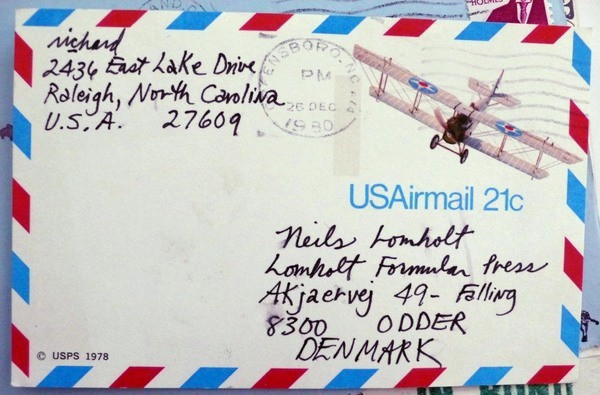 richard
2436 East Lake Drive
Raleigh, North Carolina
U.S.A. 27609
ENSBORO, NC
PM
26 DEC
1980
HOLMES
USAirmail 21c
Neils Lomholt
Lomholt Formular Press
Akjaervej 49- Falling
8300 ODDER
DENMARK
© USPS 1978